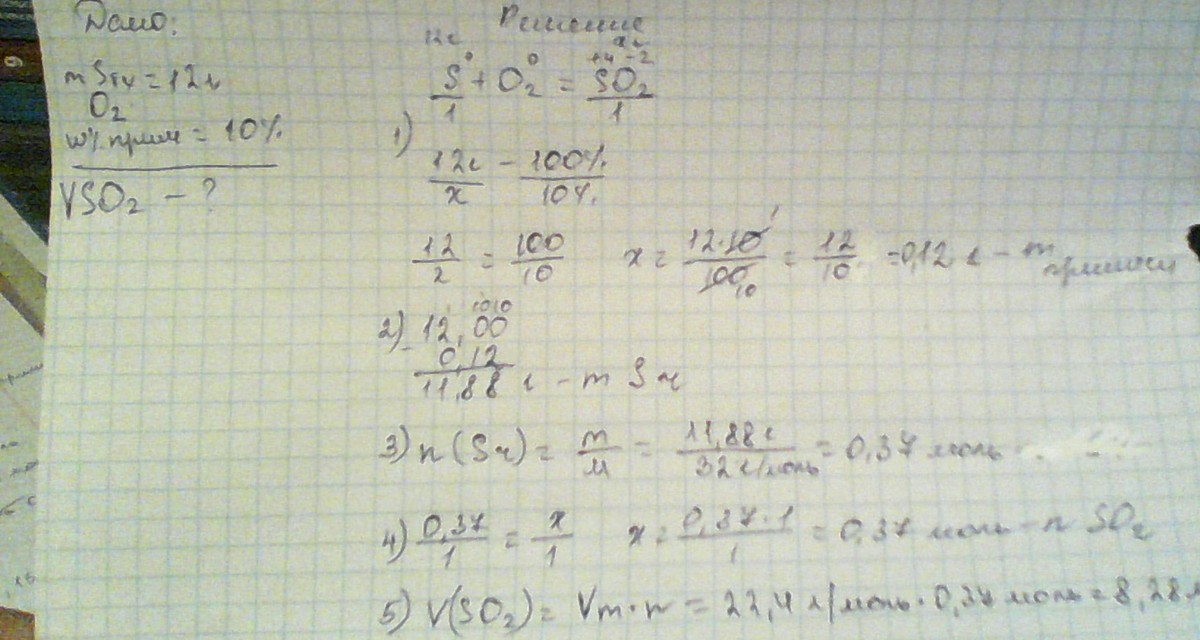 Дано:
m Sтч = 12г
O2
w% прим = 10%
VSO2 – ?
Решение
12г xл
S⁰ + O2⁰ = S⁺⁴O2⁻²
1 1
1) 12г/x – 100%/10%
12/2 = 100/10 x = 12·10/100 = 12/10 = 0,12 г – m примеси
2) 12,00
0,12
11,88 г – m S ч
3) n(Sч) = m/M = 11,88г/32г/моль = 0,37 моль
4) 0,37/1 = x/1 x = 0,37·1/1 = 0,37 моль – n SO2
5) V(SO2) = Vm·n = 22,4 л/моль·0,37 моль = 8,28л